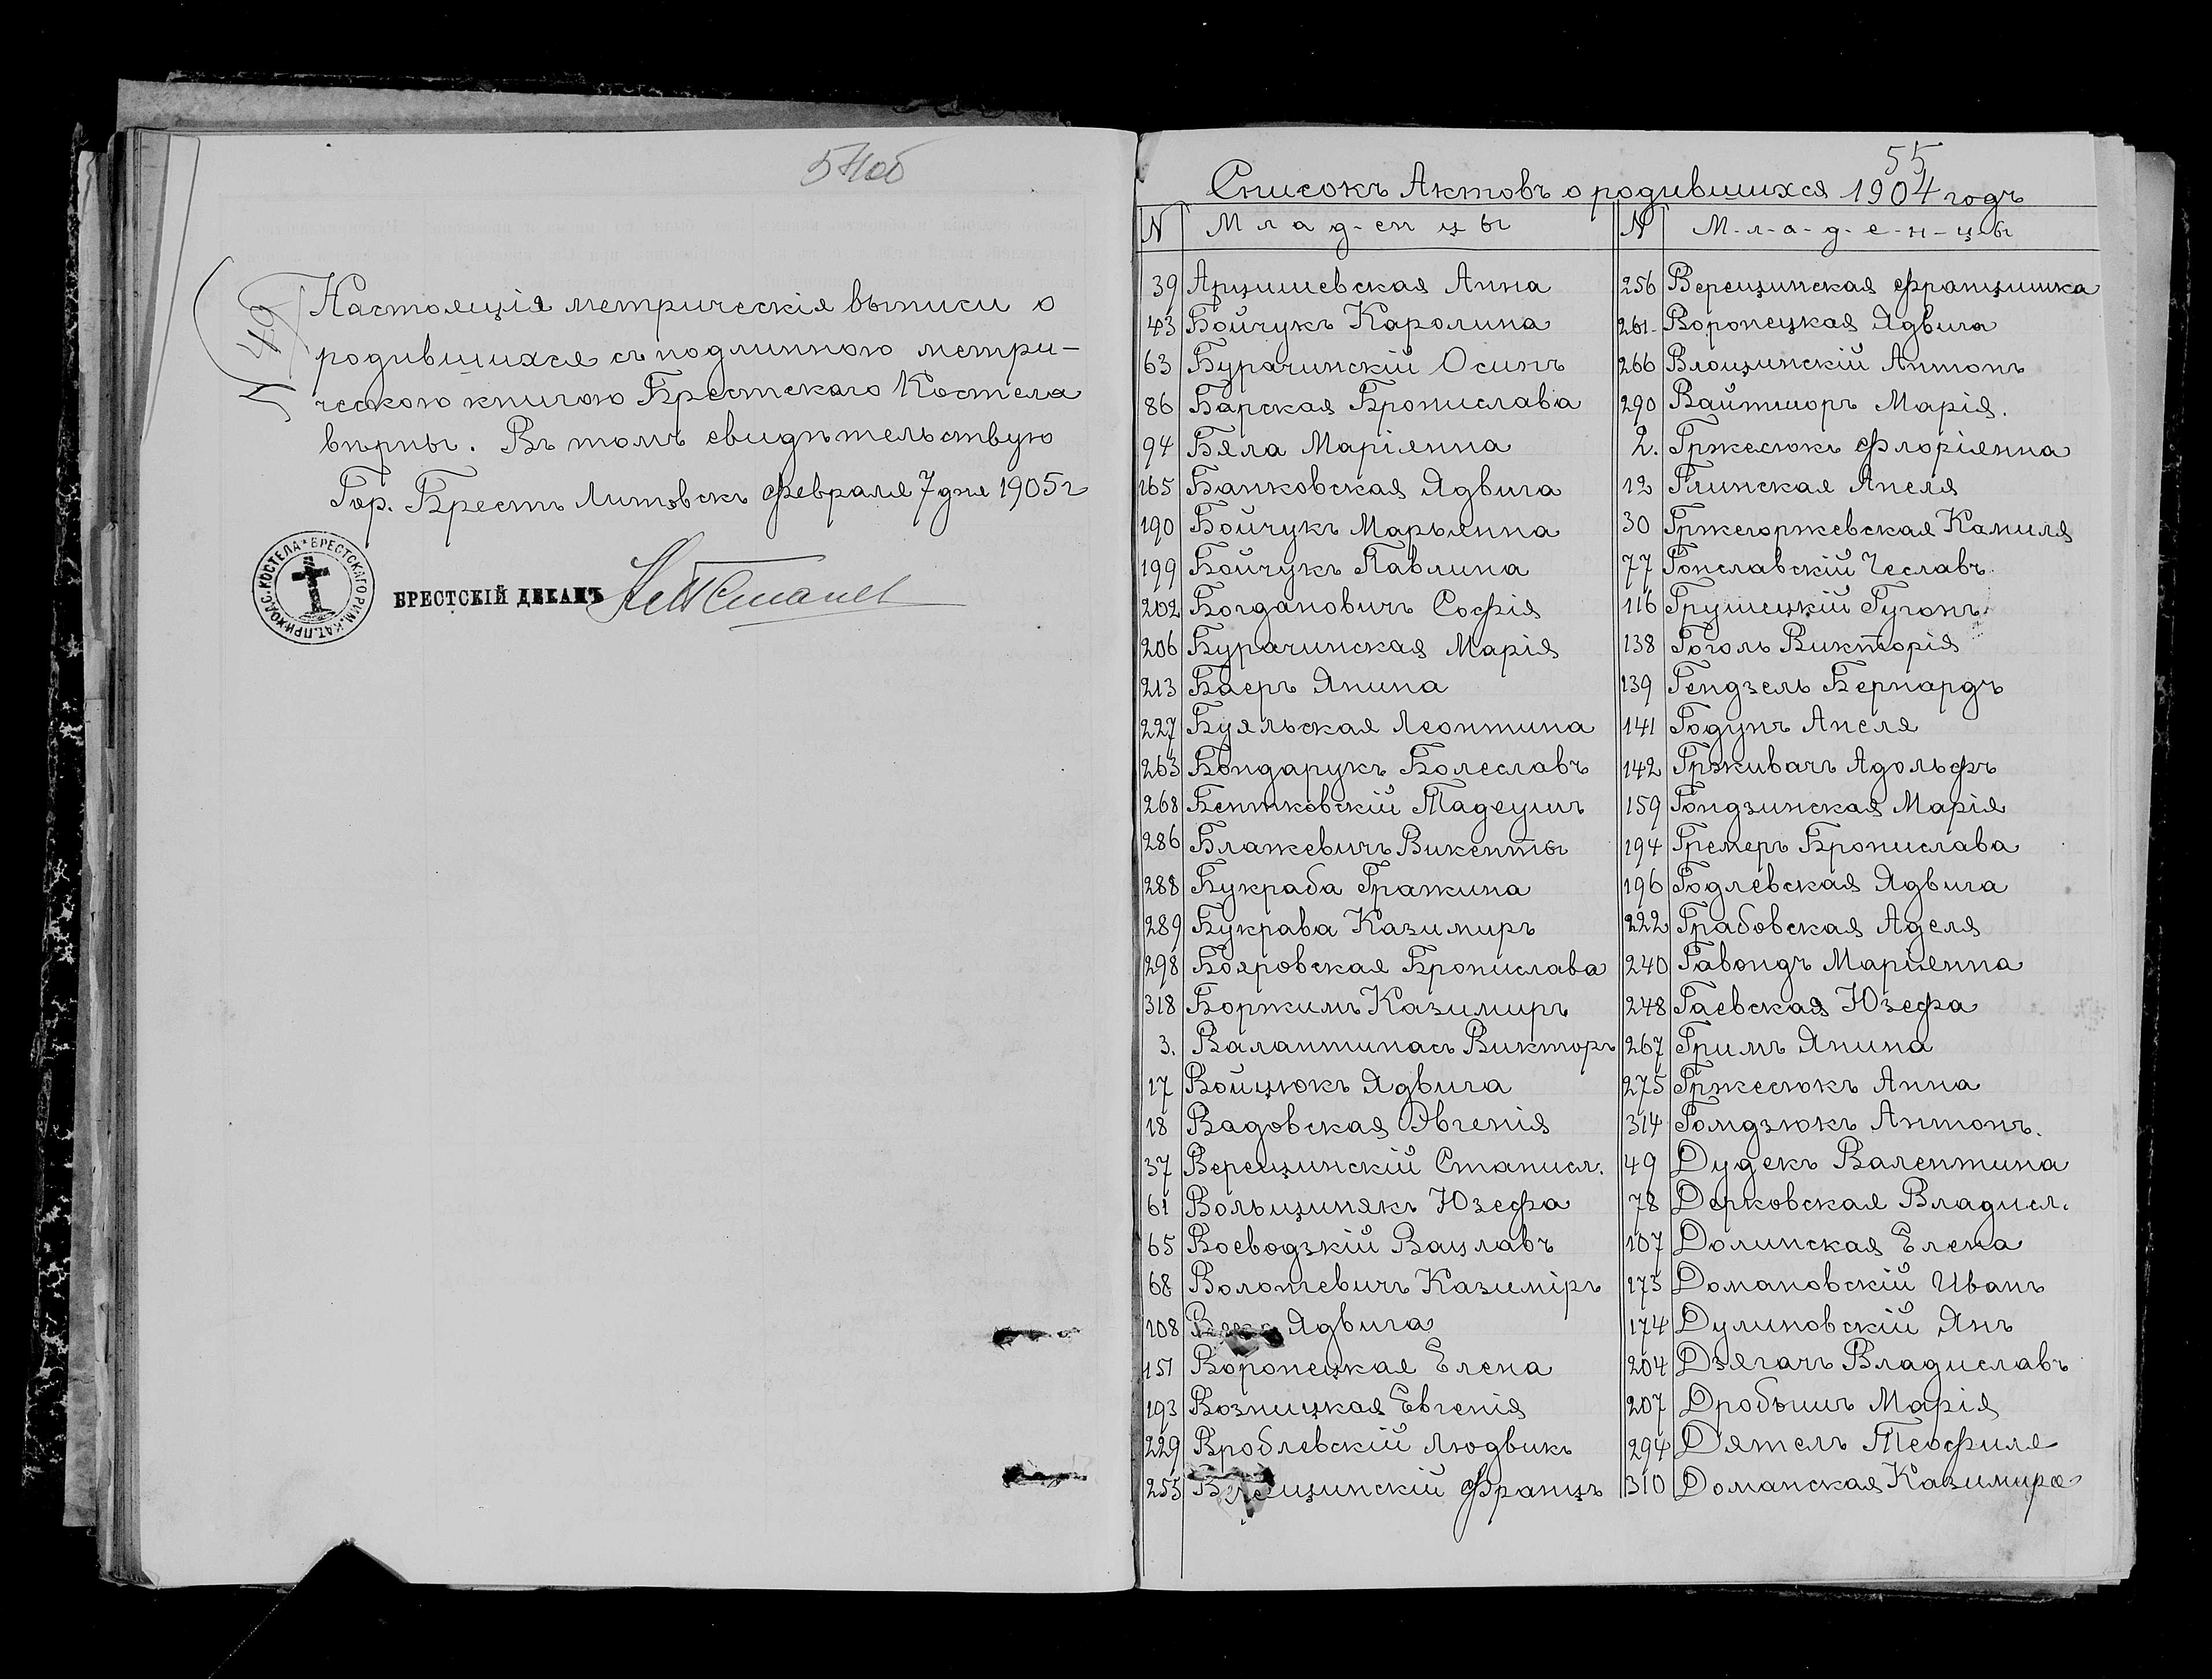 54об
N 49
Настоящія метрическія выписи о
родившихся съ подлинною метри-
ческою книгою Брестскаго Костела
вѣрны. Въ томъ свидѣтельствую
Гор. Брестъ Литовскъ февраля 7 дня 1905 г
БРЕСТСКАГО РИМ. КАТ. ПРИХОДС. КОСТЕЛА *
БРЕСТСКІЙ ДЕКАНЪ
55
Списокъ Актовъ о родившихся 1904 годъ
N Младенцы
39 Арцишевская Анна
43 Бойчукъ Каролина
63 Бурачинскій Осипъ
86 Барская Бронислава
94 Бяла Маріянна
165 Банковская Ядвига
190 Бойчукъ Марьянна
199 Бойчукъ Павлина
202 Богдановичъ Софія
206 Бурачинская Марія
213 Баеръ Янина
227 Буяльская Леонтина
263 Бондарукъ Болеславъ
268 Бентковскій Тадеушъ
286 Блажевичъ Викенты
288 Букраба Гражина
289 Букрава Казимиръ
298 Бояровская Бронислава
318 Боржимъ Казимиръ
3. Валантинасъ Викторъ
17 Войцюкъ Ядвига
18 Вадовская Эвгенія
37 Верещинскій Станисл.
61 Вольщинякъ Юзефа
65 Воеводзкій Вацлавъ
68 Волотевичъ Казиміръ
108 Ядвига
151 Воронецкая Елена
193 Возницкая Евгенія
229 Вроблевскій Людвикъ
255 Верещинскій Францъ
N М-л-а-д-е-н-ц-ы
256 Верещинская Францишка
261 Воронецкая Ядвига
266 Влощинскій Антонъ
290 Вайтшоръ Марія.
2. Гржесюкъ Флоріянна
12 Глинская Анеля
30 Гржегоржевская Камиля
77 Гонславскій Чеславъ
116 Грушецкій Гугонъ
138 Гоголь Викторія
139 Гендзель Бернардъ
141 Годунъ Анеля
142 Грживачъ Адольфъ
159 Гондзинская Марія
194 Гремеръ Бронислава
196 Годлевская Ядвига
222 Грабовская Аделя
240 Гавондъ Маріянна
248 Гаевская Юзефа
267 Гримъ Янина
275 Гржесюкъ Анна
314 Гомдзюкъ Антонъ.
49 Дудекъ Валентина
78 Дерковская Владисл.
107 Долинская Елена
173 Домановскій Иванъ
174 Дулиновскій Янъ
204 Дзягачъ Владиславъ
207 Дробышъ Марія
294 Дятелъ Теофиля
310 Доманская Казимира